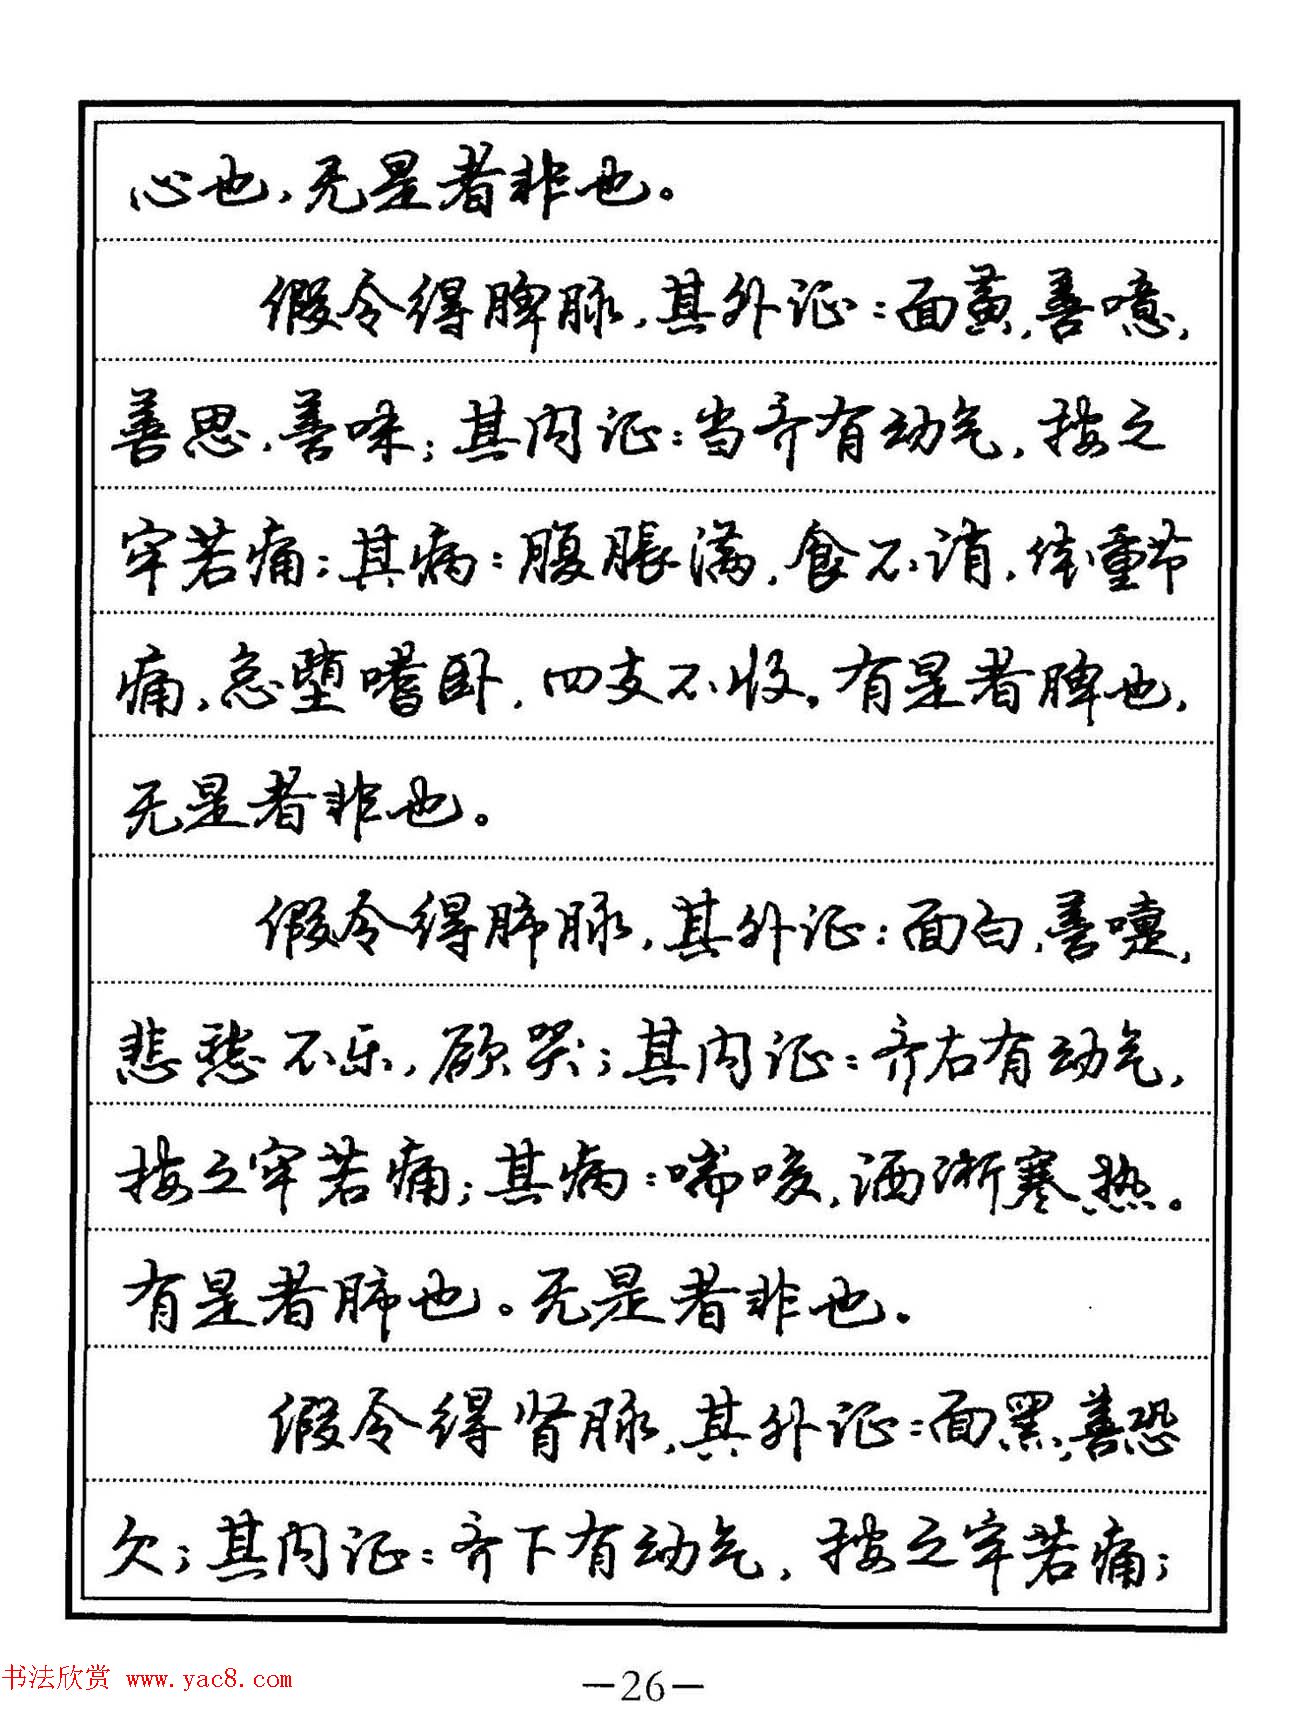 心也，无是者非也。
假令得脾脉，其外证：面黄，善噫，
善思，善味；其内证：当齐有动气，按之
牢若痛；其病：腹胀满，食不消，体重节
痛，怠堕嗜卧，四支不收。有是者脾也，
无是者非也。
假令得肺脉，其外证：面白，善嚏，
悲愁不乐，欲哭；其内证：齐右有动气，
按之牢若痛；其病：喘咳，洒淅寒热。
有是者肺也。无是者非也。
假令得肾脉，其外证：面黑，善恐
欠；其内证：齐下有动气，按之牢若痛；
书法欣赏 www.yac8.com
—26—